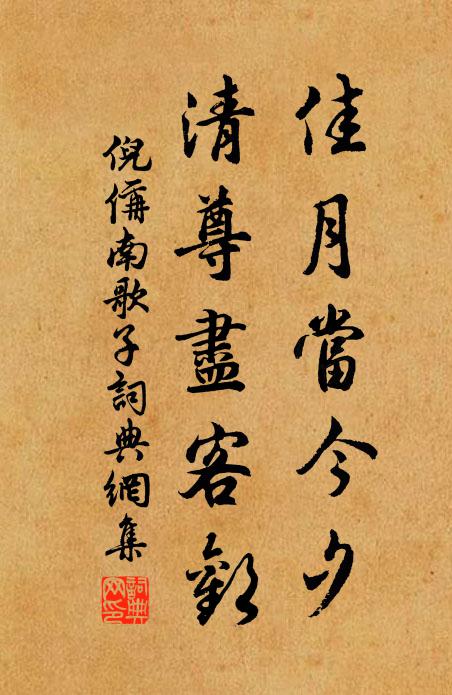 佳月當今夕
清尊盡客歡
倪偁南歌子詞典網集
詞典網印